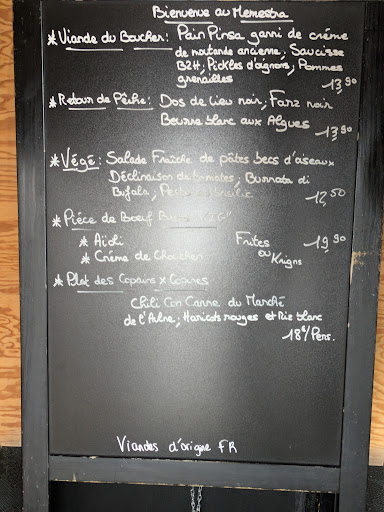 Bienvenue au Memestra
* Viande du Boucher : Pain Pinsa garni de crème
de moutarde ancienne, Saucisse
BZH; Pickles d'oignons, Pommes
grenailles
13,90
* Retour de Pêche : Dos de lieu noir, Farz noir
Beurre blanc aux Algues
13,90
* Végé : Salade Fraîche de pâtes becs d'oiseaux
Déclinaison de tomates; Burrata di
Bufala; Pesto
12,50
* Pièce de Boeuf
* Aïoli Frites 19,90
* Crème de ou Krigns
* Plat des Copains x Copines
Chili Con Carne du Marché
de l'Aulne; Haricots rouges et Riz blanc
18€/Pers.
Viandes d'origine FR